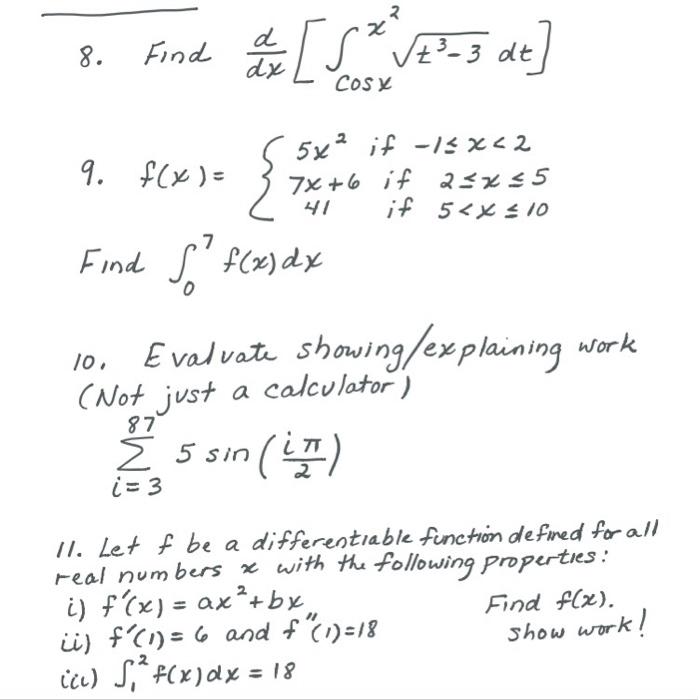 8. Find d/dx [∫_{cos x}^{x²} √(t³-3) dt]
9. f(x) = { 5x² if -1 ≤ x < 2
7x+6 if 2 ≤ x ≤ 5
41 if 5 < x ≤ 10
Find ∫_0^7 f(x) dx
10. Evaluate showing/explaining work
(Not just a calculator)
∑_{i=3}^{87} 5 sin (iπ/2)
11. Let f be a differentiable function defined for all
real numbers x with the following properties:
i) f'(x) = ax² + bx Find f(x).
ii) f'(1) = 6 and f''(1) = 18 show work!
iii) ∫_1^2 f(x) dx = 18